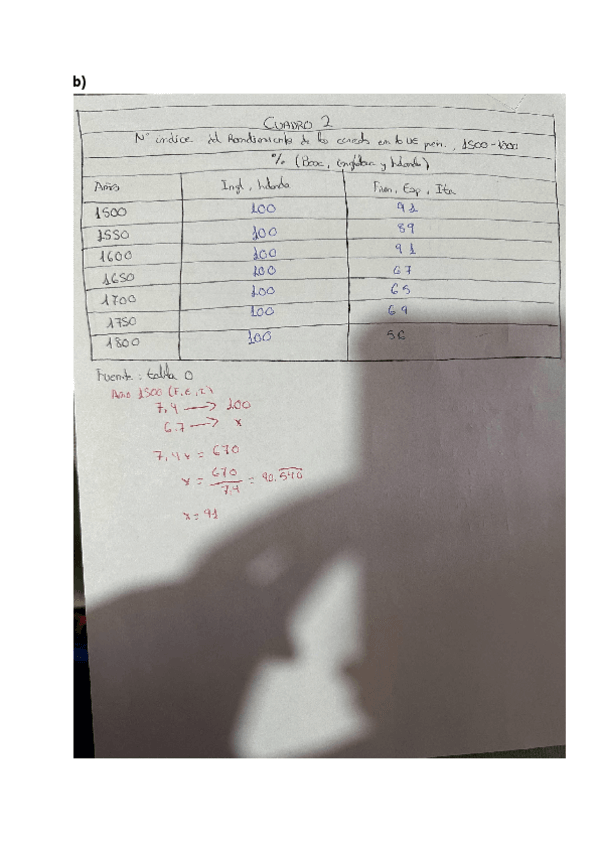 b)
CUADRO 2
Nº indice del Rendimiento de los cereales en la UE prein., 1500-1800
% (Base, Inglaterra y Holanda)
Años Ingl, Holanda Fran, Esp, Ita
1500 100 91
1550 100 89
1600 100 91
1650 100 67
1700 100 65
1750 100 69
1800 100 56
Fuente: tabla 0
Año 1500 (F, E, I)
7,4 → 100
6,7 → x
7,4x = 670
x = 670 / 7,4 = 90,540
x = 91